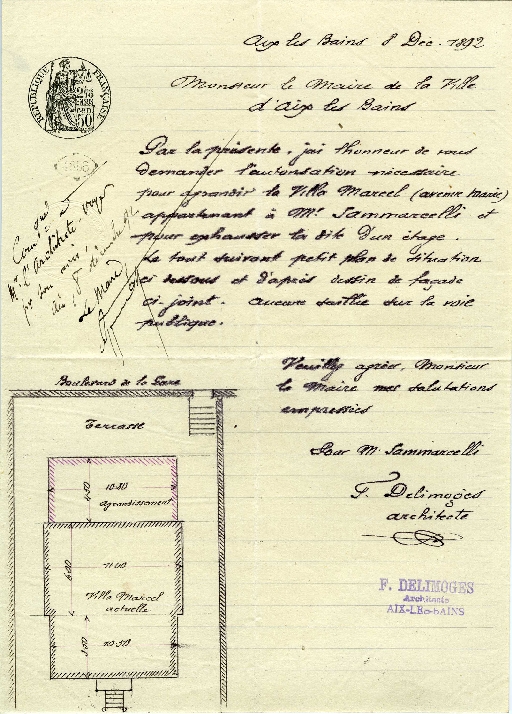 Aix les Bains 8 Déc. 1892
RÉPUBLIQUE FRANÇAISE
Monsieur le Maire de la Ville
d'Aix les Bains
Par la présente, j'ai l'honneur de vous
demander l'autorisation nécessaire
pour agrandir la Villa Marcel (avenue Marie)
appartenant à Mr Sammarcelli et
pour exhausser la dite d'un étage.
Le tout suivant petit plan de situation
ci dessous et d'après dessin de façade
ci-joint. aucune saillie sur la voie
publique.
Mr l'architecte-voyer
pr son avis
Le Maire
Veuillez agréer, Monsieur
le Maire mes salutations
empressées
Pour Mr Sammarcelli
F. Delimoges
architecte
F. DELIMOGES
Architecte
AIX-LES-BAINS
Boulevard de la Gare
Terrasse
10.50
agrandissement
11.00
Villa Marcel
actuelle
10.50